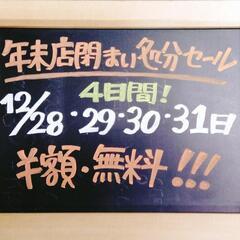 年末店閉まい処分セール
4日間!
12/28・29・30・31日
半額・無料!!!